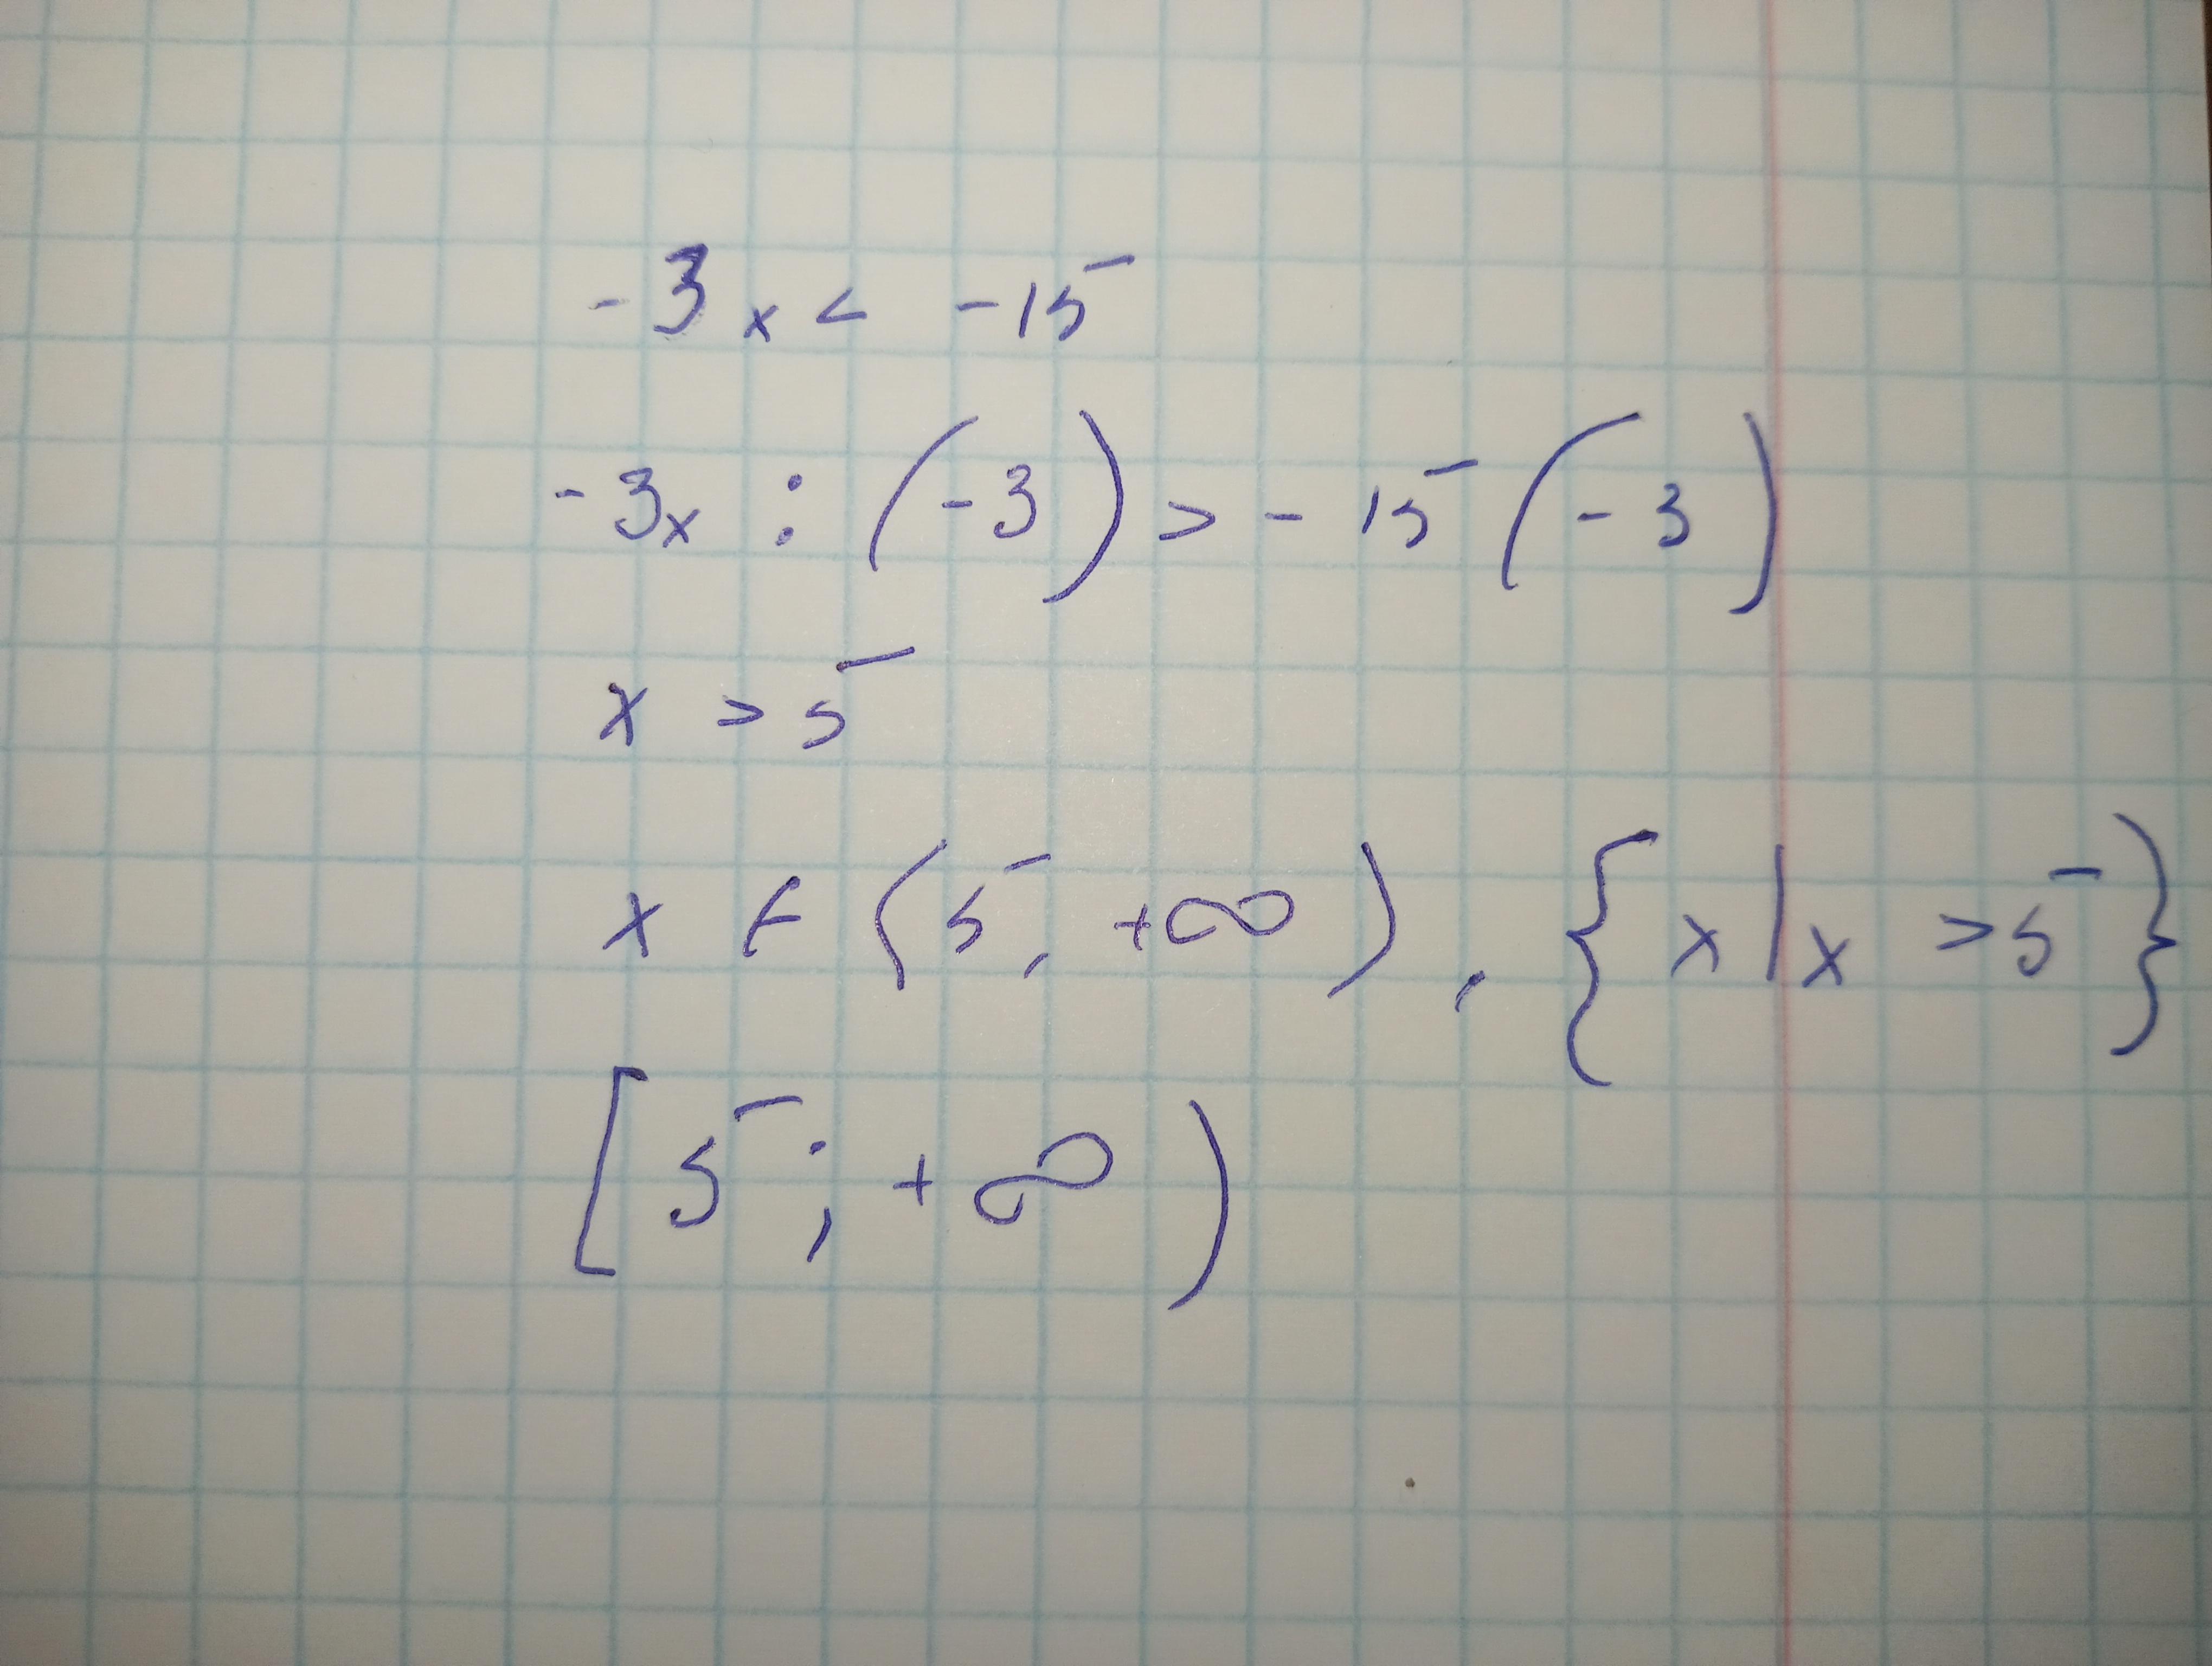 -3x < -15
-3x : (-3) > -15 (-3)
x > 5
x ∈ (5, +∞), {x|x > 5}
[5; +∞)